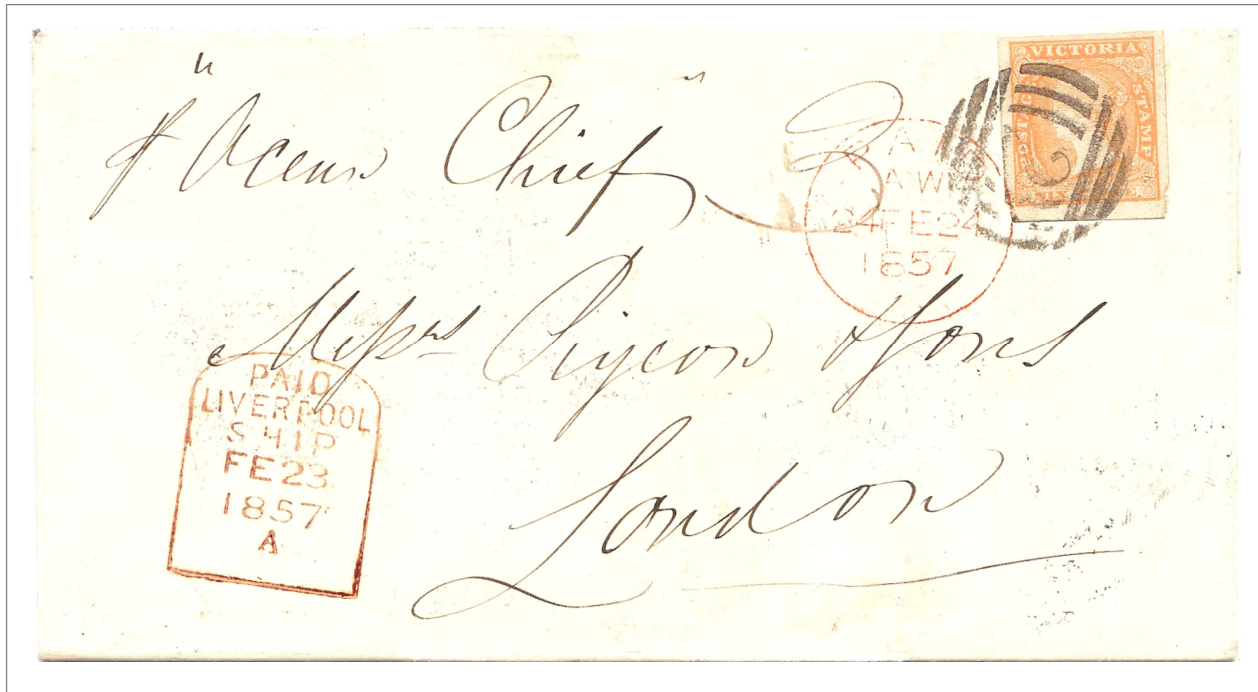 VICTORIA
POSTAGE STAMP
SIX
p "Ocean Chief"
PAID
AW
24 FE 24
1857
Messrs Pigeon & Sons
London
PAID
LIVERPOOL
SHIP
FE 23
1857
A